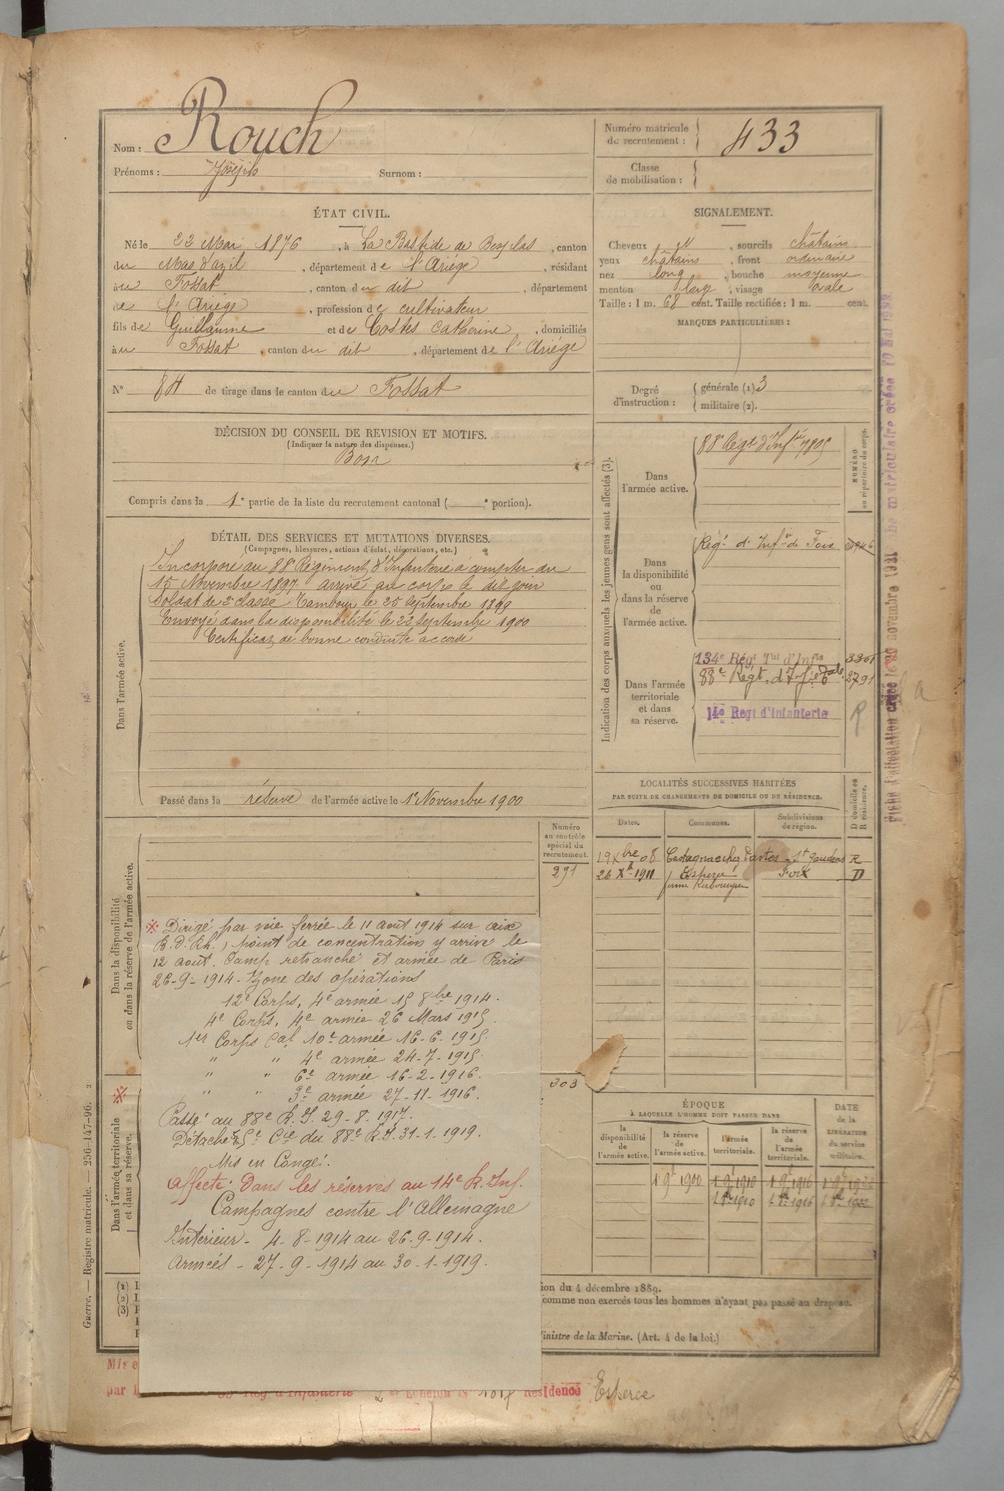 Nom : Rouch
Prénoms : Joseph Surnom :
Numéro matricule du recrutement : 433
Classe de mobilisation :
ÉTAT CIVIL.
Né le 22 Mai 1876, à La Bastide de Besplas, canton
du Mas d'azil, département de l'Ariège, résidant
au Fossat, canton du dit, département
de l'Ariège, profession de cultivateur
fils de Guillaume et de Costes Catherine, domiciliés
au Fossat, canton du dit, département de l'Ariège
N° 84 de tirage dans le canton du Fossat
SIGNALEMENT.
Cheveux et, sourcils châtains
yeux châtains, front ordinaire
nez long, bouche moyenne
menton large, visage ovale
Taille : 1 m. 68 cent. Taille rectifiée : 1 m. cent.
MARQUES PARTICULIÈRES :
Degré d'instruction : générale (1) 3
militaire (2).
DÉCISION DU CONSEIL DE REVISION ET MOTIFS.
(Indiquer la nature des dispenses.)
Bon
Compris dans la 1e partie de la liste du recrutement cantonal ( e portion).
DÉTAIL DES SERVICES ET MUTATIONS DIVERSES.
(Campagnes, blessures, actions d'éclat, décorations, etc.)
Dans l'armée active.
Incorporé au 88e Régiment d'Infanterie à compter du
15 Novembre 1897 arrivé au corps le dit jour
soldat de 2e classe Tambour le 25 Septembre 1899
Envoyé dans la disponibilité le 22 Septembre 1900
Certificat de bonne conduite accordé
Passé dans la réserve de l'armée active le 1er Novembre 1900
Indication des corps auxquels les jeunes gens sont affectés (3).
NUMÉRO au répertoire du corps.
Dans l'armée active.
88e Regt d'Inftie
Dans la disponibilité ou dans la réserve de l'armée active.
Regt d'Inftie de Foix
Dans l'armée territoriale et dans sa réserve.
134e Régt Tal d'Infie 3301
88e Régt d'Infie 2791
14e Regt d'Infanterie R
LOCALITÉS SUCCESSIVES HABITÉES
PAR SUITE DE CHANGEMENTS DE DOMICILE OU DE RÉSIDENCE.
Dates. Communes. Subdivisions de région. D domicile ou R résidence.
19 Xbre 08 St Gaudens R
26 Xb 1911 Esperce Foix D
Numéro au contrôle spécial du recrutement.
291
303
Dans la disponibilité ou dans la réserve de l'armée active.
Dans l'armée territoriale et dans sa réserve.
Dirigé par voie ferrée le 11 août 1914 sur aix
B. D. Rh., point de concentration y arrive le
12 août. Camp retranché et armée de Paris
26-9-1914. Zone des opérations
12e Corps, 4e armée 15 8bre 1914.
4e Corps, 4e armée 26 Mars 1915.
1er Corps Cal 10e armée 16-6-1915.
" " 4e armée 24-7-1915.
" " 6e armée 16-2-1916.
" " 3e armée 27-11-1916.
Passé au 88e R.I. 29-8-1917.
Détaché 5e Cie du 88e R.I. 31-1-1919.
Mis en Congé.
affecté dans les réserves au 14e R. Inf.
Campagnes contre l'Allemagne
Intérieur - 4-8-1914 au 26-9-1914.
Armées - 27-9-1914 au 30-1-1919.
ÉPOQUE
À LAQUELLE L'HOMME DOIT PASSER DANS
la disponibilité de l'armée active. la réserve de l'armée active. l'armée territoriale. la réserve de l'armée territoriale. DATE de la LIBÉRATION du service militaire.
1 9bre 1900 1 9 1910 1 9 1916
ion du 4 décembre 1889.
comme non exercés tous les hommes n'ayant pas passé au drapeau.
Ministre de la Marine. (Art. 4 de la loi.)
(1)
(2)
(3)
Guerre. — Registre matricule. — 256-147-96.
Mis e
par l Rég d'Infanterie Echelon Résidence Esperce